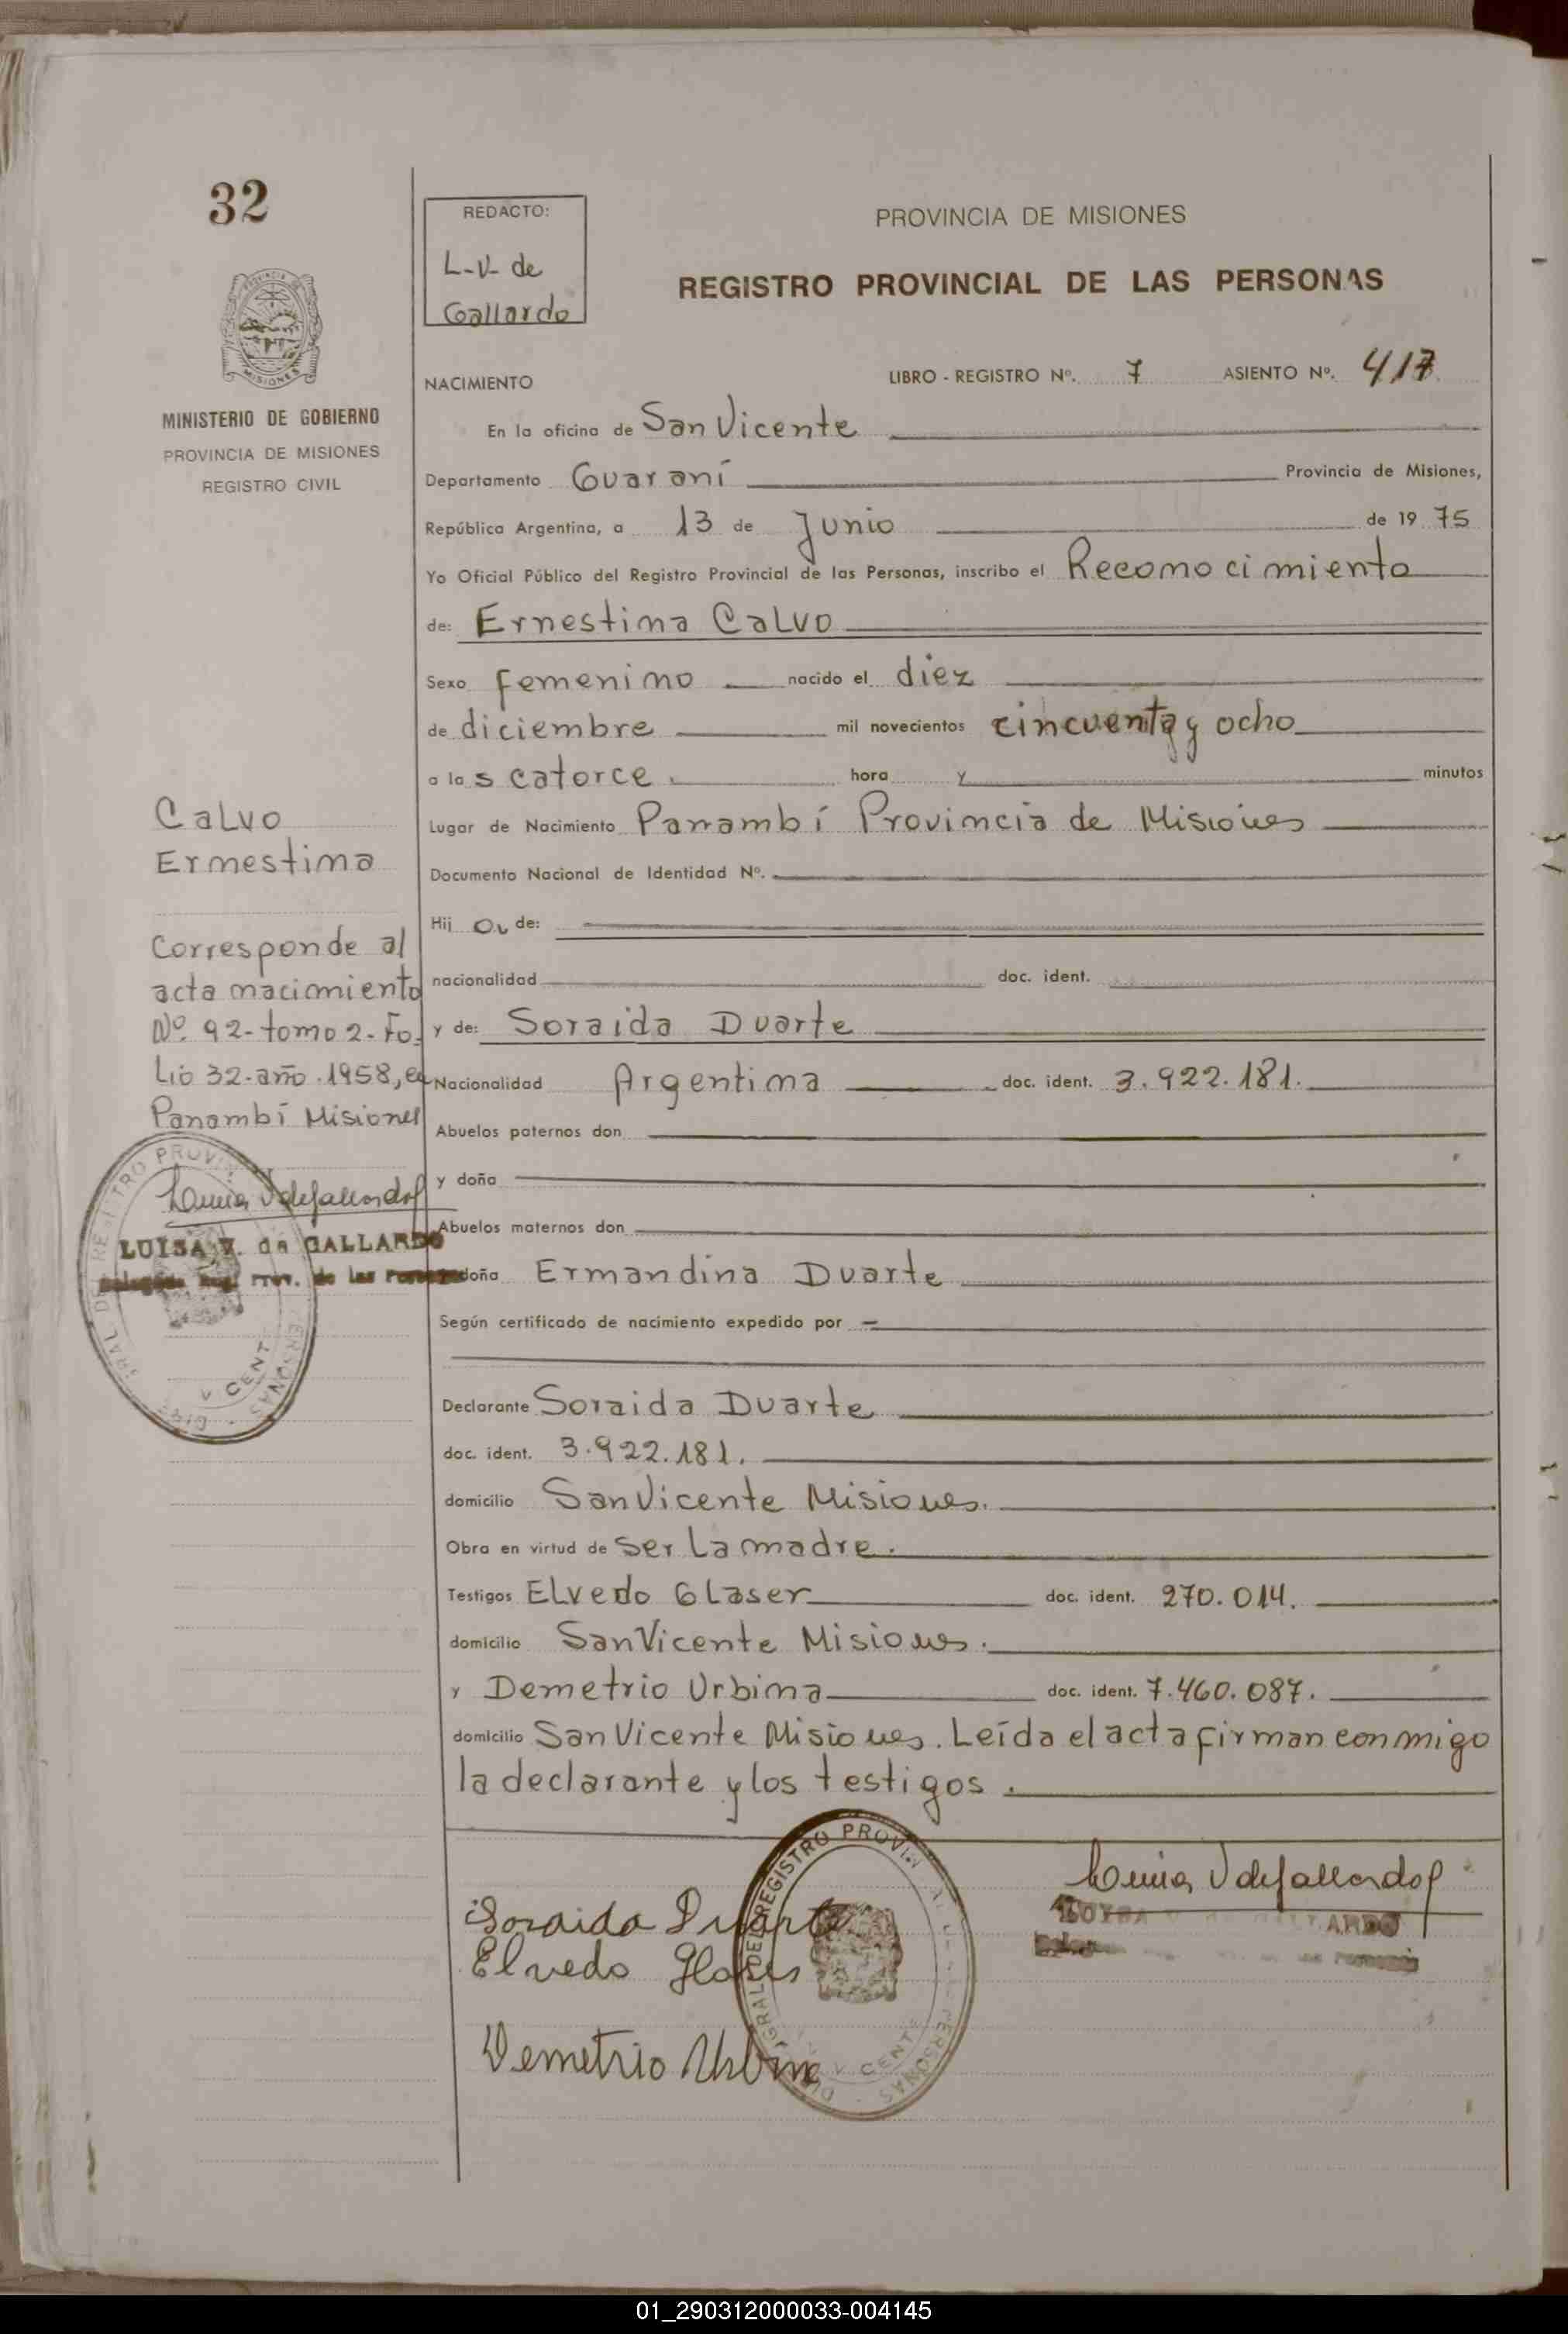 32
REDACTO:
L-V- de
Gallardo
PROVINCIA DE MISIONES
REGISTRO PROVINCIAL DE LAS PERSONAS
MISIONES
MINISTERIO DE GOBIERNO
PROVINCIA DE MISIONES
REGISTRO CIVIL
NACIMIENTO
LIBRO - REGISTRO Nº. 7 ASIENTO Nº. 417
En la oficina de San Vicente
Departamento Guaraní Provincia de Misiones,
República Argentina, a 13 de Junio de 19 75
Yo Oficial Público del Registro Provincial de las Personas, inscribo el Reconocimiento
de: Ernestina Calvo
Sexo femenino nacido el diez
de diciembre mil novecientos cincuenta y ocho
a las catorce. hora y minutos
Lugar de Nacimiento Panambí Provincia de Misiones
Documento Nacional de Identidad Nº.
Hij a de:
nacionalidad doc. ident.
y de: Soraida Duarte
Nacionalidad Argentina doc. ident. 3.922.181.
Abuelos paternos don
y doña
Abuelos maternos don
doña Ermandina Duarte
Según certificado de nacimiento expedido por
Declarante Soraida Duarte
doc. ident. 3.922.181.
domicilio San Vicente Misiones.
Obra en virtud de Ser La madre.
Testigos Elvedo Glaser doc. ident. 270.014.
domicilio San Vicente Misiones.
y Demetrio Urbina doc. ident. 7.460.087.
domicilio San Vicente Misiones. Leída el acta firman conmigo
la declarante y los testigos.
Calvo
Ernestina
Corresponde al
acta nacimiento
Nº. 92- tomo 2- Fo-
lio 32- año . 1958, en
Panambí Misiones
LUISA V. de GALLARDO
Soraida Duarte
Elvedo
Demetrio Urbina
01_290312000033-004145